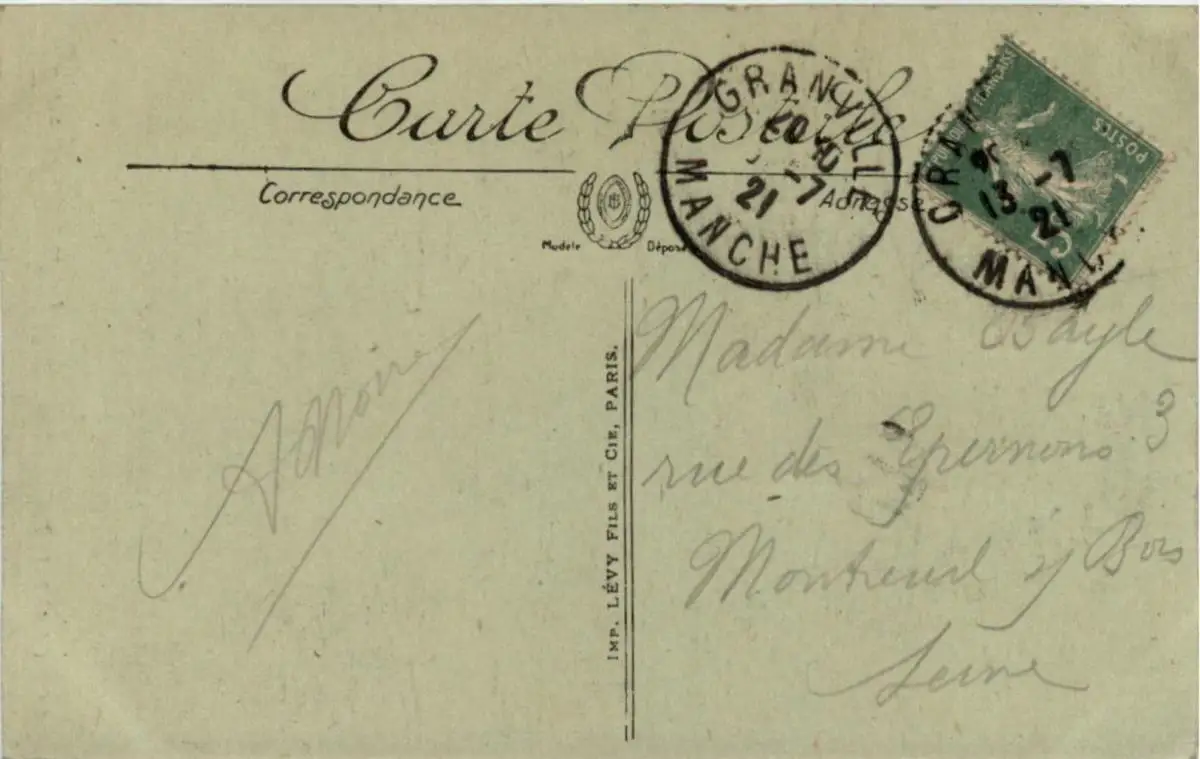 Carte Postale
Correspondance
Adresse
Modèle Déposé
GRANVILLE
21 -7
MANCHE
RÉPUBLIQUE FRANÇAISE
POSTES
5
GRAN
13 -7
21
MAN
IMP. LÉVY FILS ET CIE, PARIS.
Madame Bayle
rue des Epernons 3
Montreuil s/ Bois
Seine